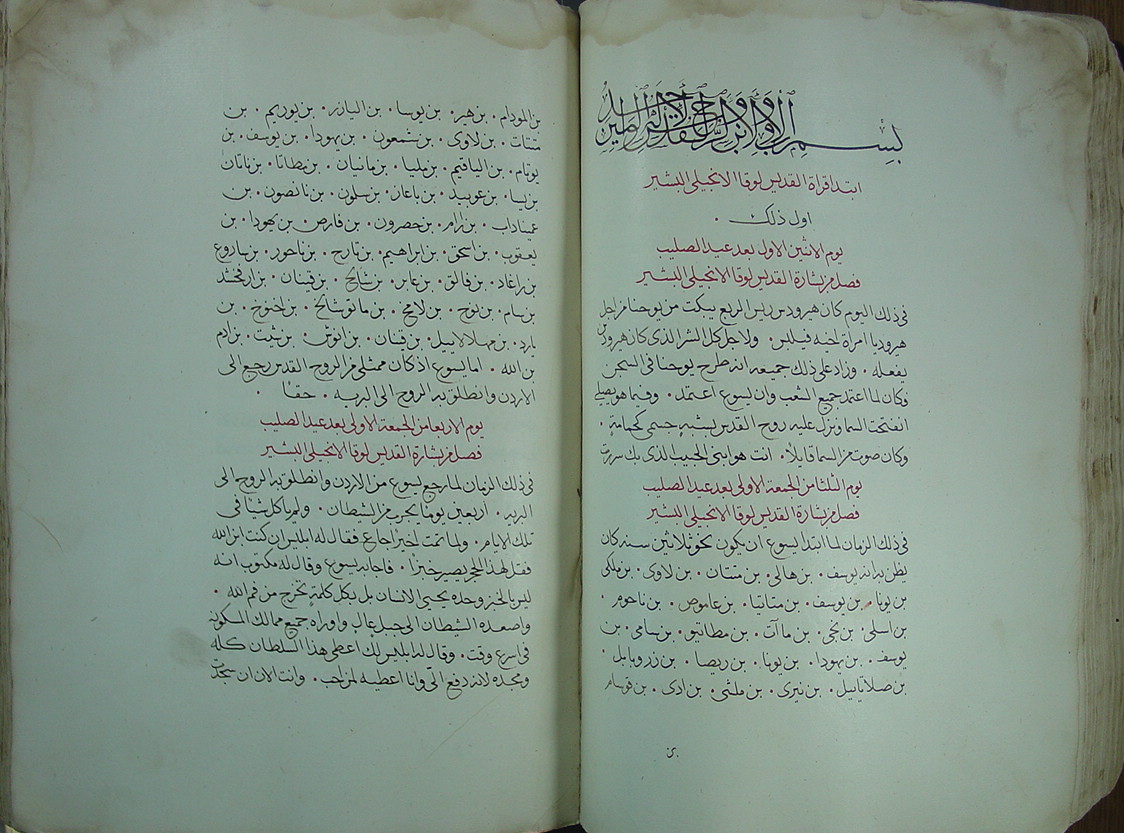 بسم الاب والابن والروح القدس الاه واحد امين
ابتدا قراة القديس لوقا الانجيلي البشير
اول ذلك ٠
يوم الاثنين الاول بعد عيد الصليب
فصل من بشارة القديس لوقا الانجيلي البشير
في ذلك اليوم كان هيرودس ريس الربع يبكت من يوحنا من اجل
هيروديا امراة اخيه فيلبس ٠ ولاجل كل الشر الذي كان هيرودس
يفعله ٠ وزاد على ذلك جميعه انه طرح يوحنا في السجن
وكان لما اعتمد جميع الشعب وان يسوع اعتمد ٠ وفيما هو يصلي
انفتحت السما ونزل عليه روح القدس بشبه جسمي كحمامة ٠
وكان صوت من السما قايلا ٠ انت هو ابني الحبيب الذي بك سررت
يوم الثلثا من الجمعة الاولى بعد عيد الصليب
فصل من بشارة القديس لوقا الانجيلي البشير
في ذلك الزمان لما ابتدا يسوع ان يكون نحو ثلاثين سنه كان
يظن به انه يوسف ٠ بن هالي ٠ بن متتان ٠ بن لاوي ٠ بن ملكي
بن يونا ٠ بن يوسف ٠ بن متاتيا ٠ بن عاموص ٠ بن ناحوم ٠
بن اسلي ٠ بن نجي ٠ بن ماآت ٠ بن مطاتيو ٠ بن سامي ٠ بن
يوسف ٠ بن يهودا ٠ بن يونا ٠ بن ريصا ٠ بن زروبابل ٠
بن صلاتاييل ٠ بن نيري ٠ بن ملشي ٠ بن ادي ٠ بن قوسام
بن
بن المودام ٠ بن هير ٠ بن يوسا ٠ بن اليازر ٠ بن يوريم ٠ بن
متتات ٠ بن لاوي ٠ بن شمعون ٠ بن يهودا ٠ بن يوسف ٠ بن
يوتام ٠ بن الياقيم ٠ بن مليا ٠ بن مانيان ٠ بن مطاتا ٠ بن ناتان
بن يسا ٠ بن عوبيد ٠ بن باعاز ٠ بن سلون ٠ بن نانصون ٠ بن
عميناداب ٠ بن ارام ٠ بن حصرون ٠ بن فارص ٠ بن يهودا ٠ بن
يعقوب ٠ بن اسحق ٠ بن ابراهيم ٠ بن تارح ٠ بن ناحور ٠ بن ساروع
بن راغاد ٠ بن فالق ٠ بن عابر ٠ بن شالخ ٠ بن قينان ٠ بن ارفخشد
بن سام ٠ بن نوح ٠ بن لامخ ٠ بن ماتوشالخ ٠ بن اخنوخ ٠ بن
يارد ٠ بن مهلالاييل ٠ بن قينان ٠ بن انوش ٠ بن شيت ٠ بن ادم
بن الله ٠ اما يسوع اذ كان ممتلي من الروح القدس رجع الى
الاردن وانطلق به الروح الى البريه ٠ حقا ٠
يوم الاربعا من الجمعة الاولى بعد عيد الصليب
فصل من بشارة القديس لوقا الانجيلي البشير
في ذلك الزمان لما رجع يسوع من الاردن وانطلق به الروح الى
البريه ٠ اربعين يوما يجرب من الشيطان ٠ ولم ياكل شيا في
تلك الايام ٠ ولما تمت اخيرا جاع فقال له ابليس ان كنت ابن الله
فقل لهذا الحجر يصير خبزا ٠ فاجابه يسوع وقال له مكتوب انه
ليس بالخبز وحده يحيى الانسان بل بكل كلمة تخرج من فم الله ٠
واصعده الشيطان الى جبل عال واوراه جميع ممالك المسكونه
في اسرع وقت ٠ وقال له ابليس لك اعطي هذا السلطان كله
ومجده لانه دفع الي وانا اعطيه لمن احب ٠ وانت الان ان سجدت